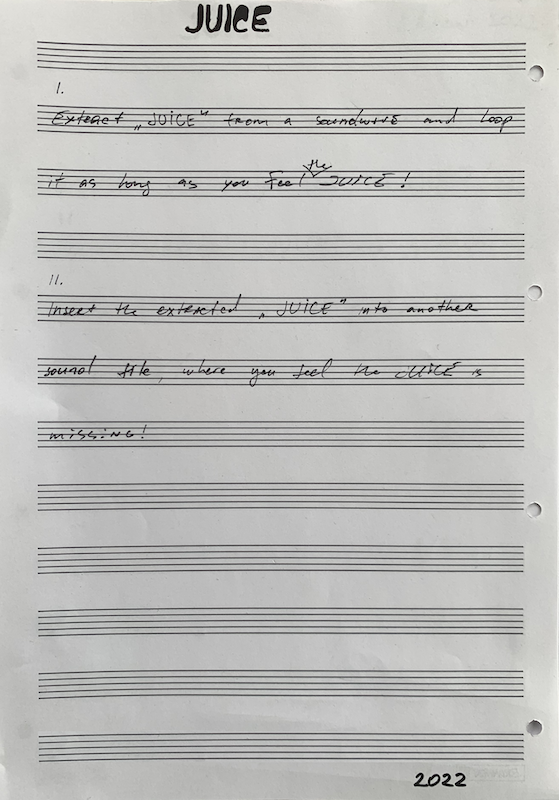 JUICE
I.
Extract „JUICE" from a soundwave and loop
it as long as you feel the JUICE!
II.
Insert the extracted „JUICE" into another
sound file, where you feel the JUICE is
missing!
2022